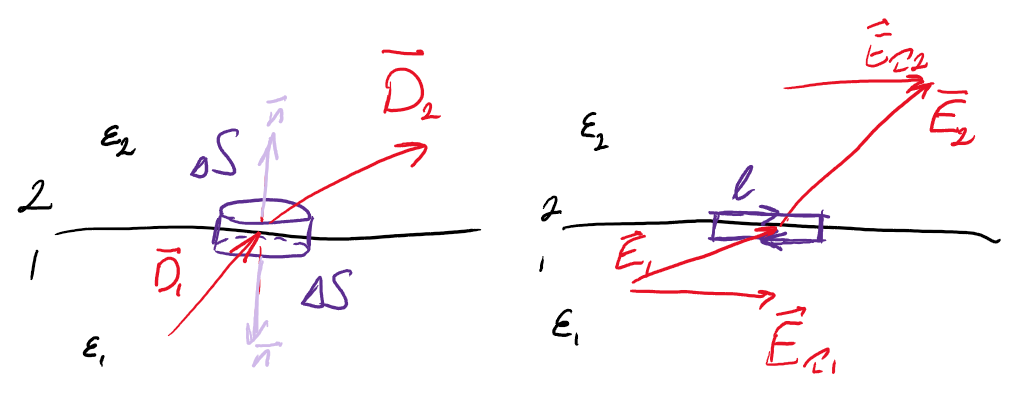 D⃗₂
n⃗
ΔS
ε₂
2
1
D⃗₁
ΔS
ε₁
n⃗
E⃗τ₂
E⃗₂
ε₂
l
2
1
E⃗₁
ε₁
E⃗τ₁